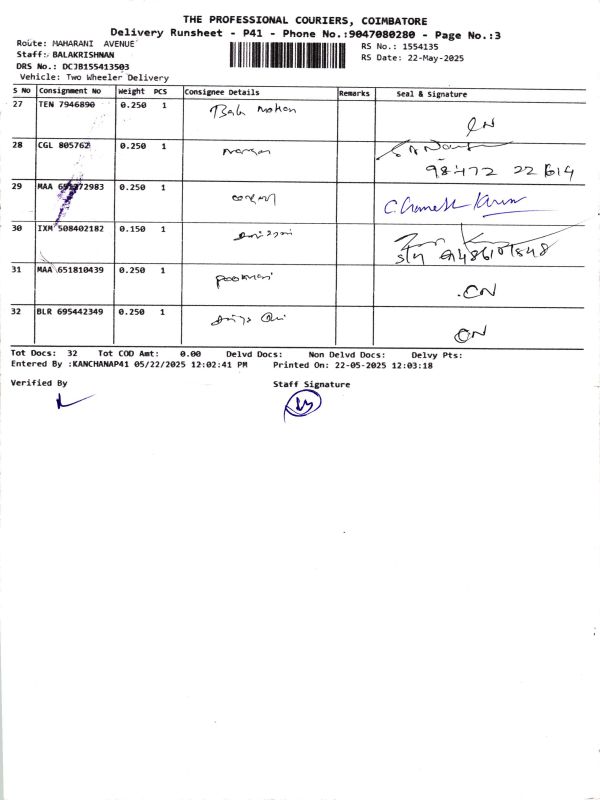 THE PROFESSIONAL COURIERS, COIMBATORE
Delivery Runsheet - P41 - Phone No.:9047080280 - Page No.:3
Route: MAHARANI AVENUE RS No.: 1554135
Staff: BALAKRISHNAN RS Date: 22-May-2025
DRS No.: DCJB155413503
Vehicle: Two Wheeler Delivery
S No Consignment No Weight PCS Consignee Details Remarks Seal & Signature
27 TEN 7946890 0.250 1 Babu Mohan
28 CGL 805762 0.250 1
98472 22614
29 MAA 651372983 0.250 1 C. Ramesh Kumar
30 IXM 508402182 0.150 1
31 MAA 651810439 0.250 1 CN
32 BLR 695442349 0.250 1 CN
Tot Docs: 32 Tot COD Amt: 0.00 Delvd Docs: Non Delvd Docs: Delvy Pts:
Entered By :KANCHANAP41 05/22/2025 12:02:41 PM Printed On: 22-05-2025 12:03:18
Verified By Staff Signature